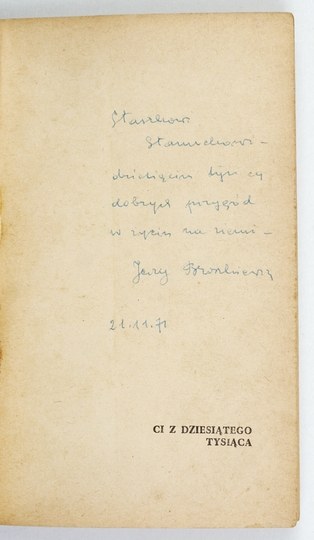 Staszkowi
Stanuchowi –
dziesięciu tysięcy
dobrych przygód
w życiu na ziemi –
Jerzy Broszkiewicz
21.11.71
CI Z DZIESIĄTEGO
TYSIĄCA